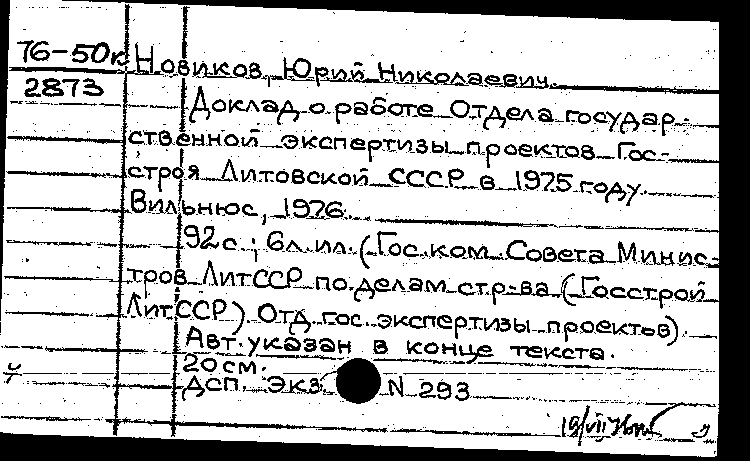 76-50к Новиков, Юрий Николаевич.
2873
Доклад о работе Отдела государ-
ственной экспертизы проектов Гос-
строя Литовской СССР в 1975 году.
Вильнюс, 1976.
92 с.; 6 л. ил. (Гос. ком. Совета Минис-
тров ЛитССР по делам стр-ва (Госстрой
ЛитССР) Отд. гос. экспертизы проектов).
Авт. указан в конце текста.
20 см.
ДСП. Экз. N 293